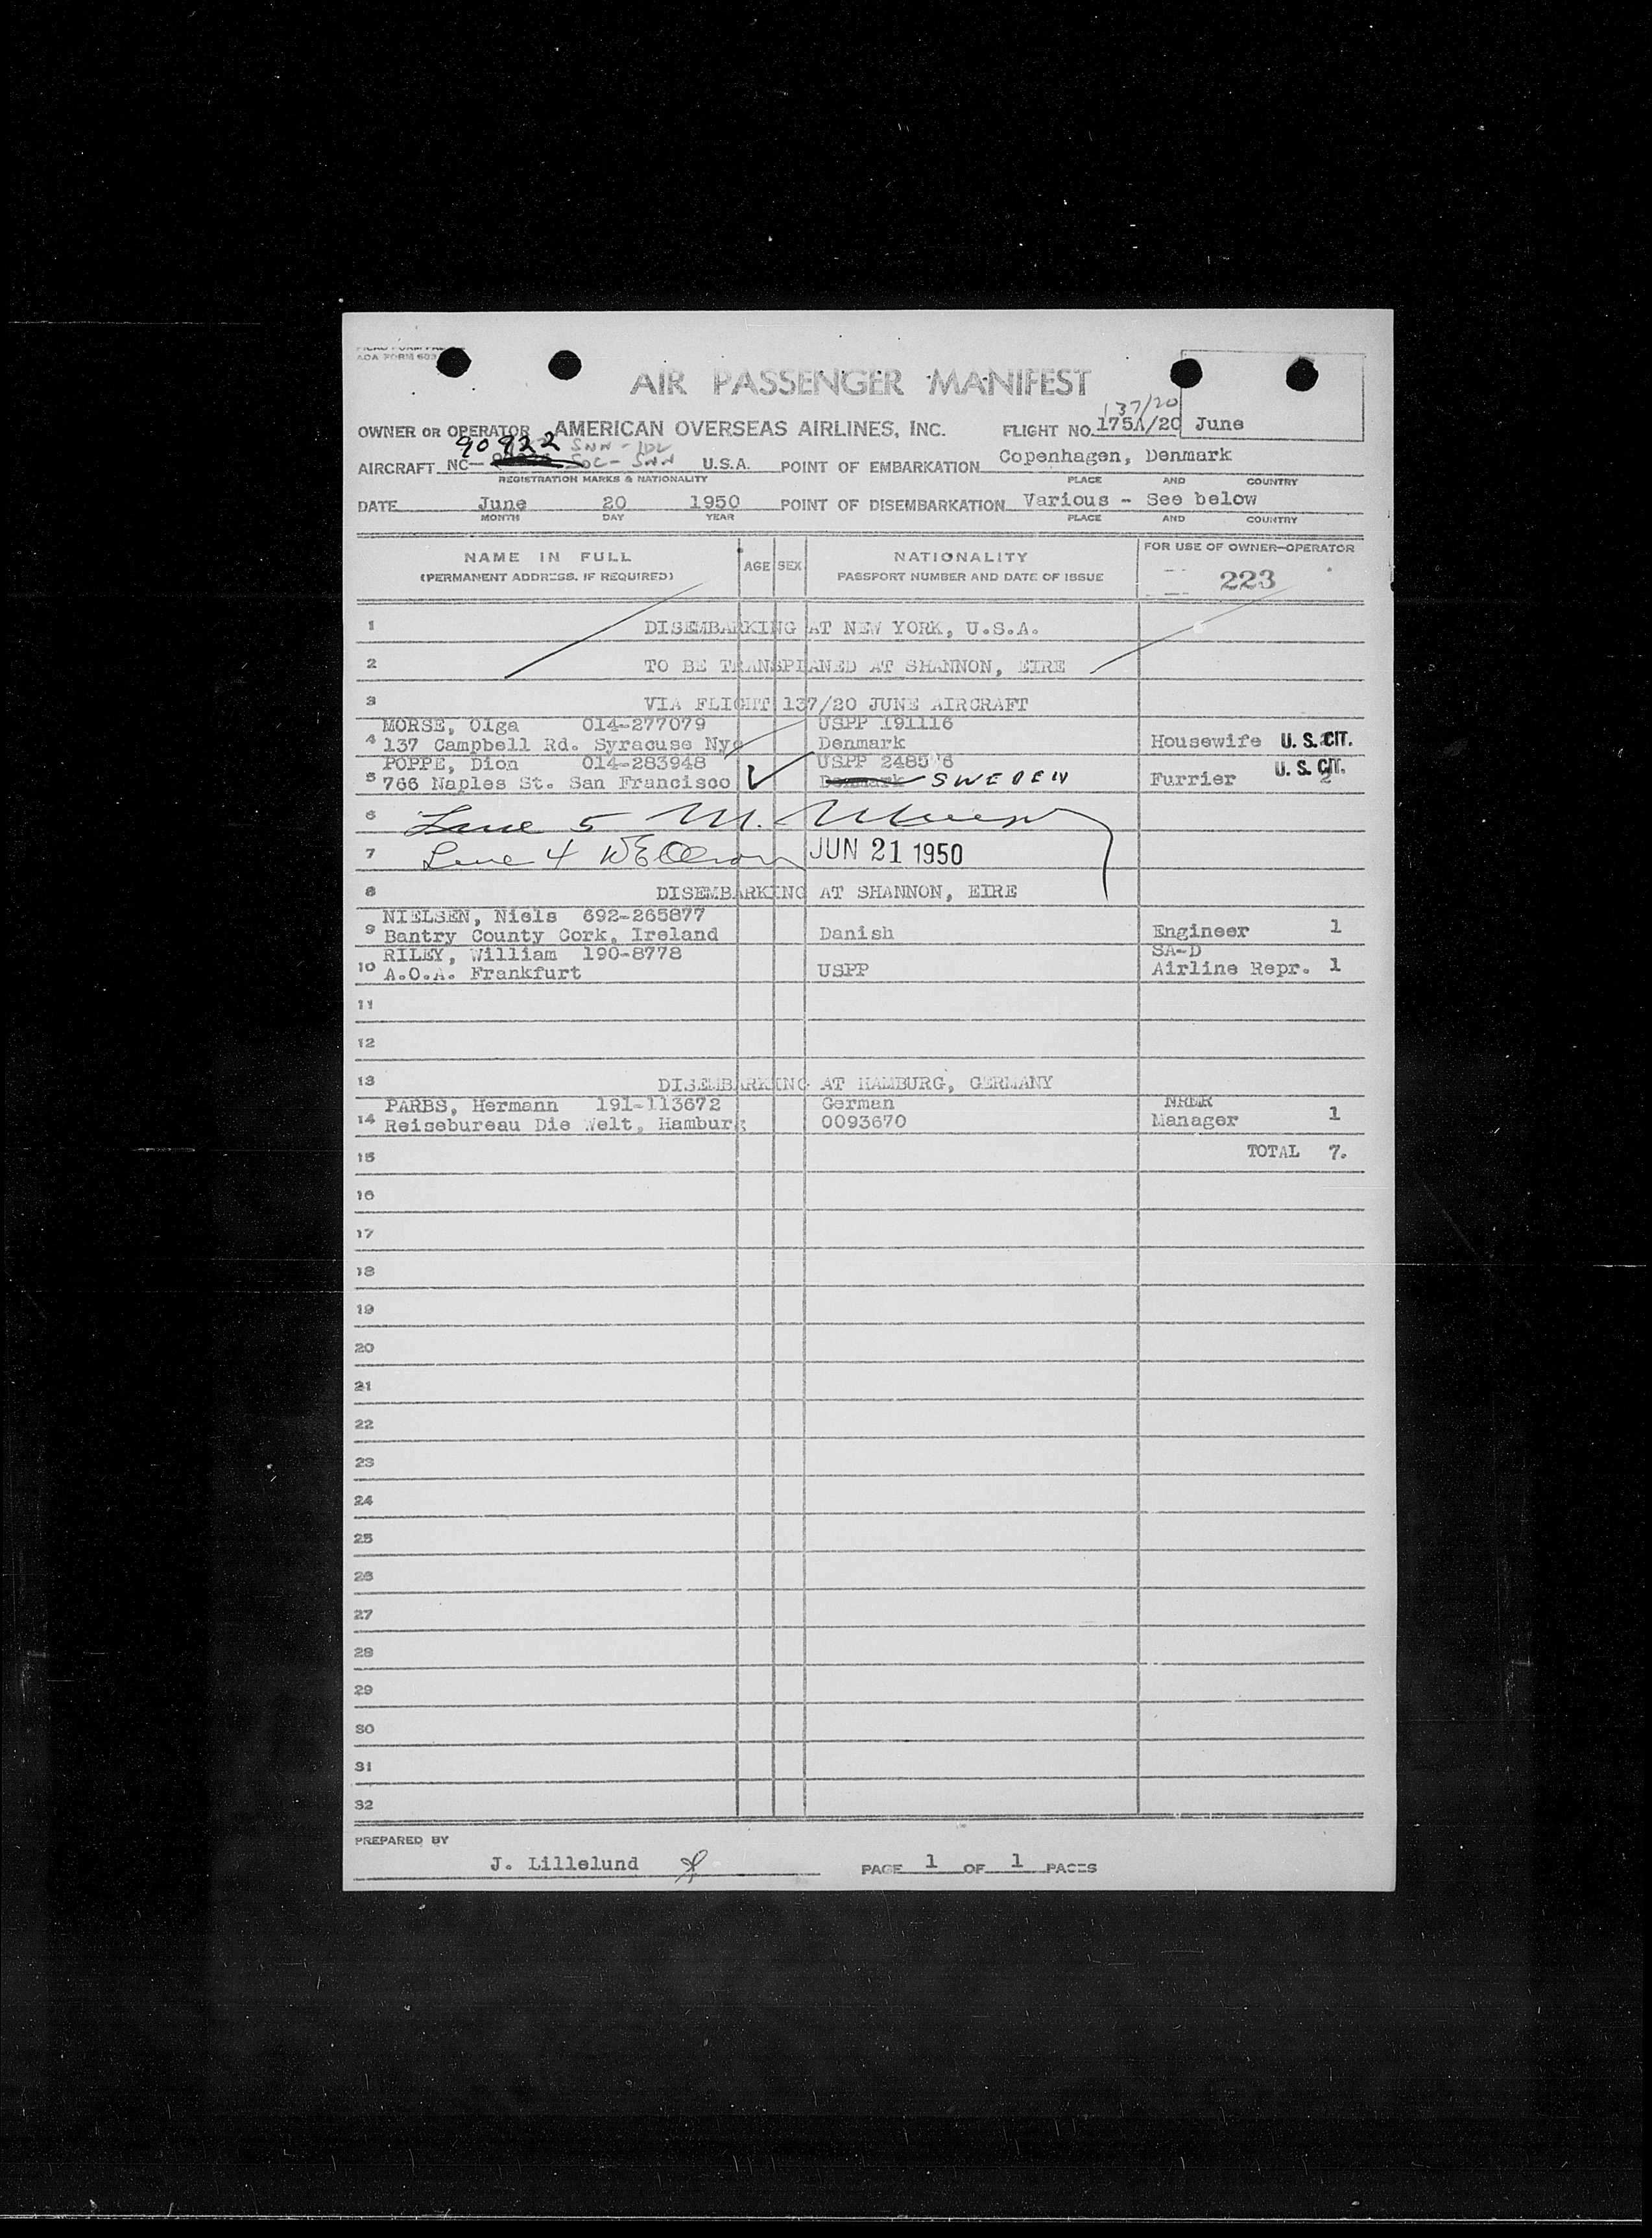 AOA FORM 603
AIR PASSENGER MANIFEST
137/20
OWNER OR OPERATOR AMERICAN OVERSEAS AIRLINES, INC. FLIGHT NO. 175A/20 June
90922 SNN - IDL
AIRCRAFT NC- SNN U.S.A. POINT OF EMBARKATION Copenhagen, Denmark
REGISTRATION MARKS & NATIONALITY PLACE AND COUNTRY
DATE June 20 1950 POINT OF DISEMBARKATION Various - See below
MONTH DAY YEAR PLACE AND COUNTRY
NAME IN FULL AGE SEX NATIONALITY FOR USE OF OWNER-OPERATOR
(PERMANENT ADDRESS, IF REQUIRED) PASSPORT NUMBER AND DATE OF ISSUE 223
1 DISEMBARKING AT NEW YORK, U.S.A.
2 TO BE TRANSPLANED AT SHANNON, EIRE
3 VIA FLIGHT 137/20 JUNE AIRCRAFT
MORSE, Olga 014-277079 USPP 191116
4 137 Campbell Rd. Syracuse Nyc Denmark Housewife U. S. CIT.
POPPE, Dion 014-283948 USPP 2485 6
5 766 Naples St. San Francisco Denmark SWEDEN Furrier U. S. CIT. 2
6 Line 5 M.
7 Line 4 JUN 21 1950
8 DISEMBARKING AT SHANNON, EIRE
NIELSEN, Niels 692-265877
9 Bantry County Cork, Ireland Danish Engineer 1
RILEY, William 190-8778 SA-D
10 A.O.A. Frankfurt USPP Airline Repr. 1
11
12
13 DISEMBARKING AT HAMBURG, GERMANY
PARBS, Hermann 191-113672 German
14 Reisebureau Die Welt, Hamburg 0093670 Manager 1
15 TOTAL 7.
16
17
18
19
20
21
22
23
24
25
26
27
28
29
30
31
32
PREPARED BY
J. Lillelund PAGE 1 OF 1 PAGES